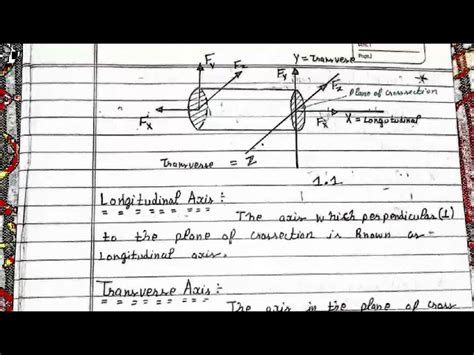 Page
Fy
Fz
Y = Transverse
Fy
Fz
*
Plane of crossection
Fx
Fx
X = Longitudinal
Transverse = Z
1.1
Longitudinal Axis :-
The axis which perpendicular (⊥)
to the plane of crossection is known as
Longitudinal axis.
Transverse Axis :-
The axis in the plane of cross